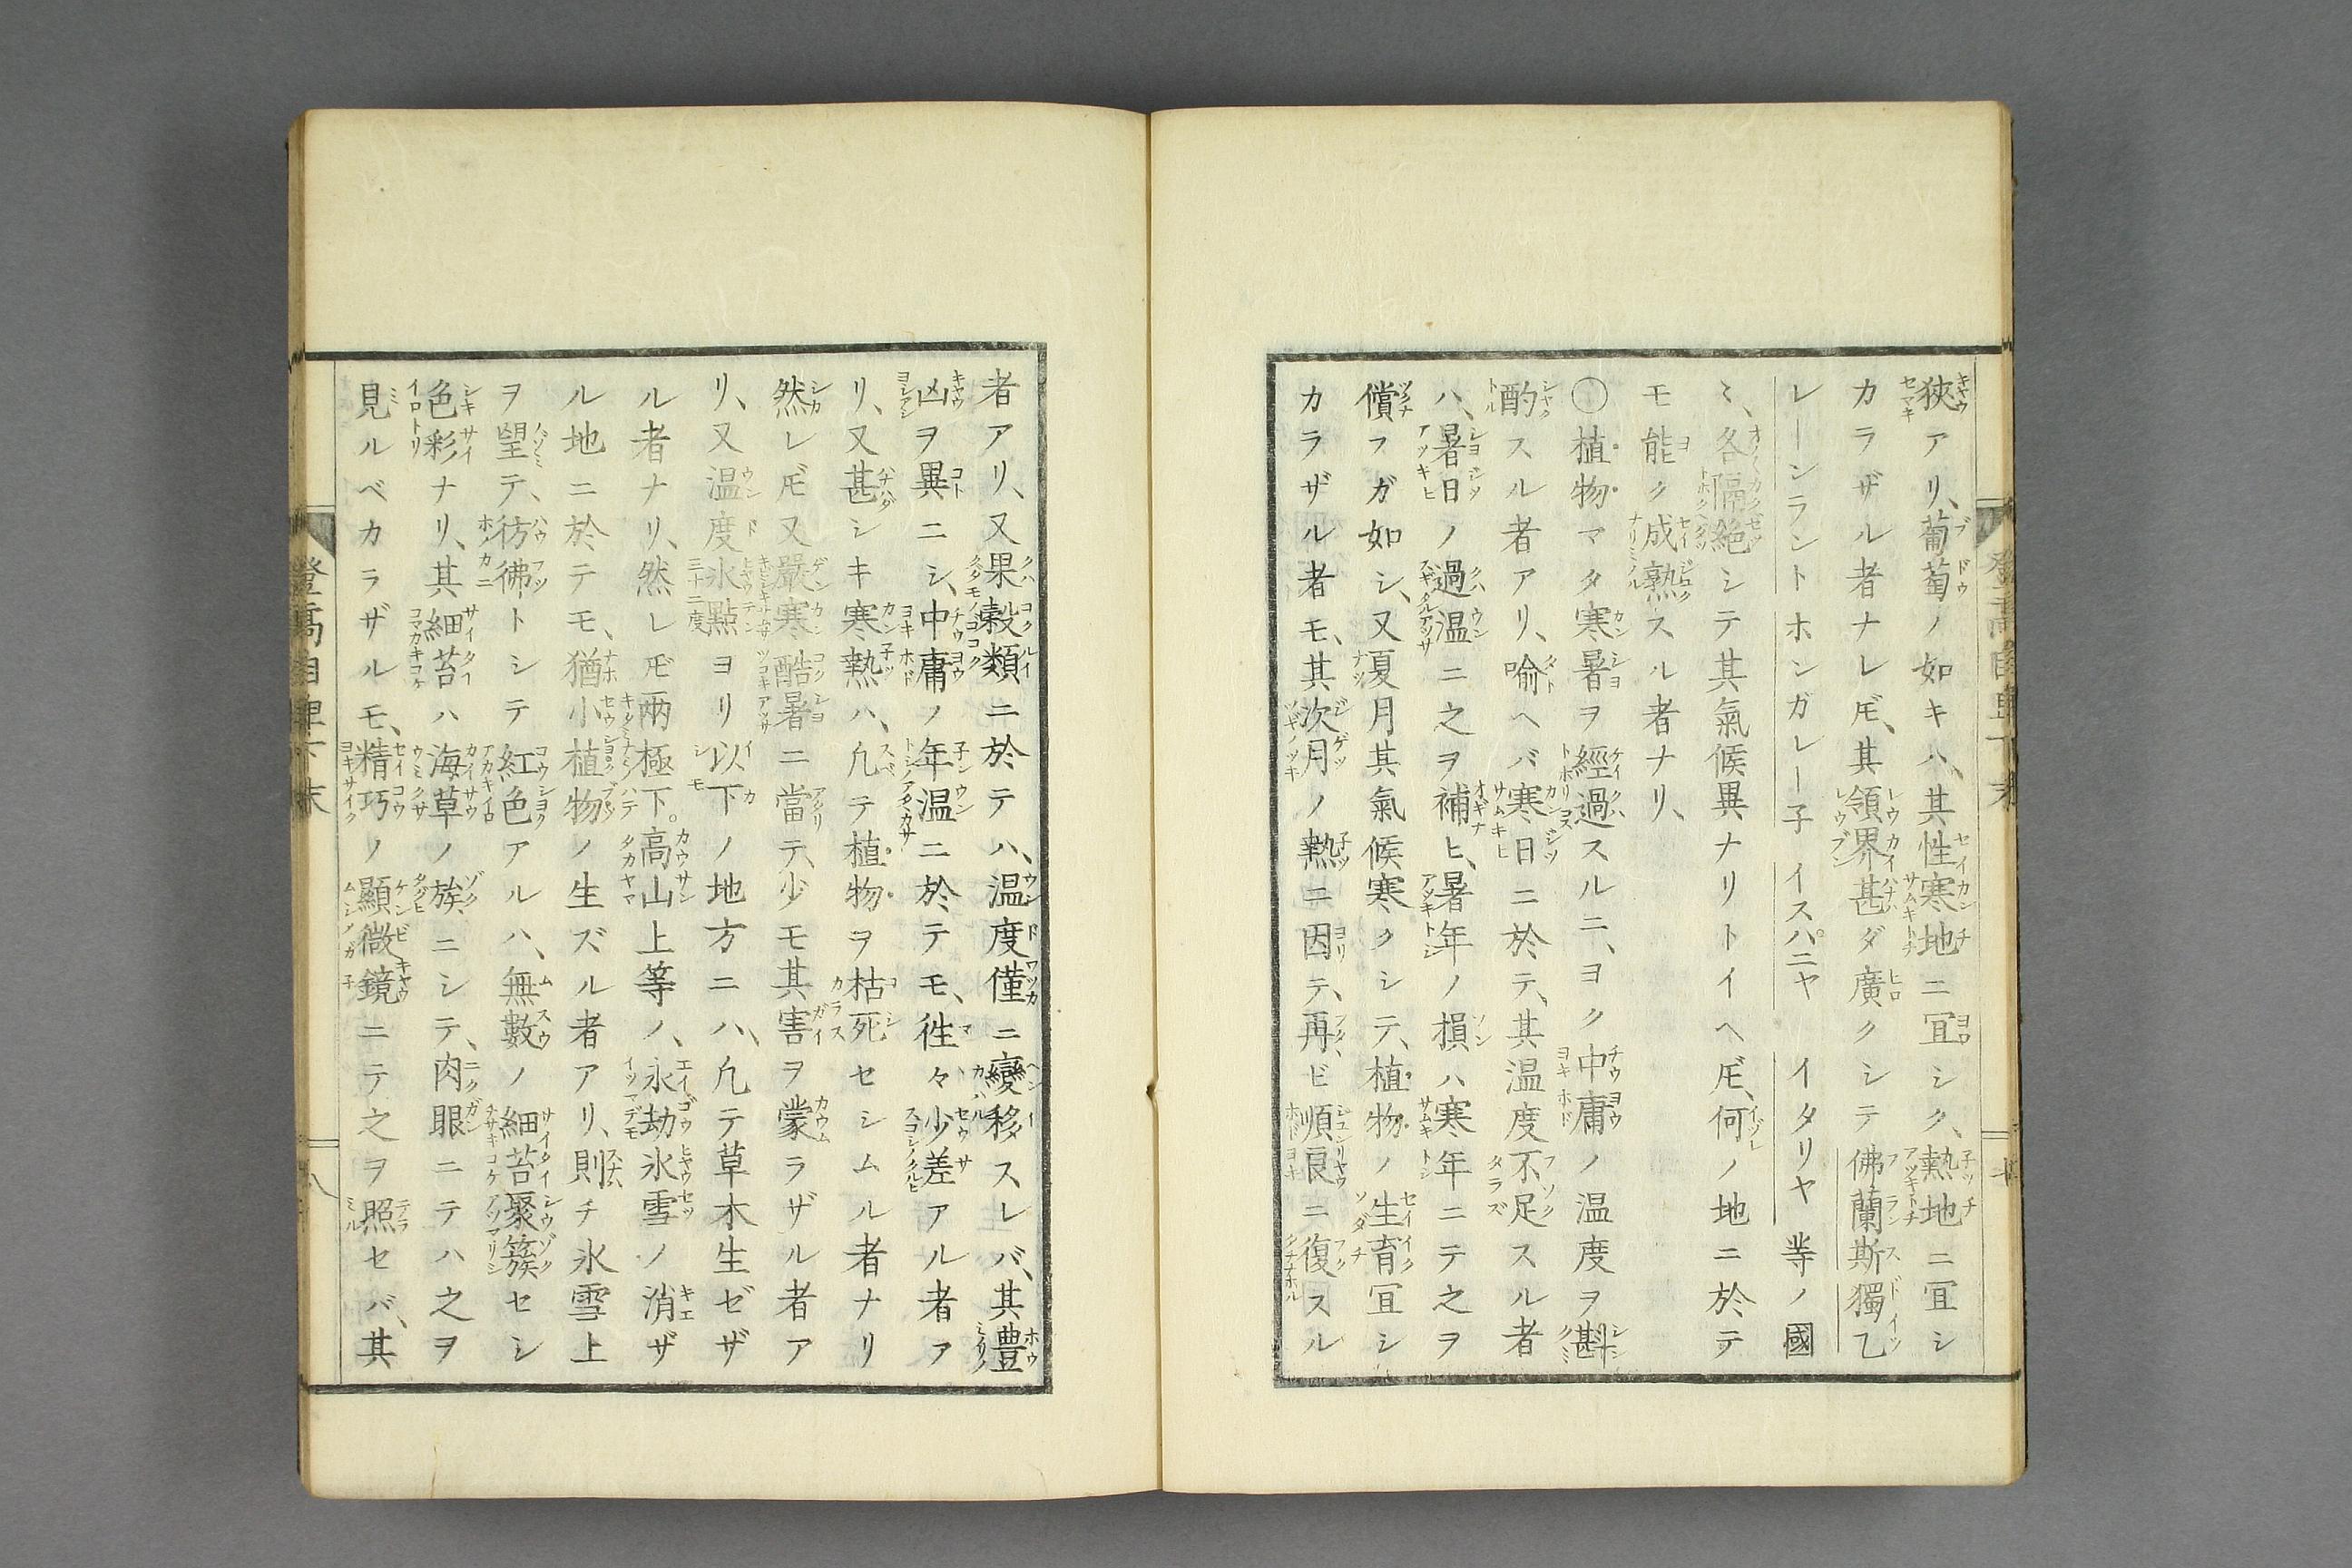 狹アリ、葡萄ノ如キハ、其性寒地ニ冝シク、熱地ニ冝シ
カラザル者ナレ𪜈、其領界甚ダ廣クシテ佛蘭斯獨乙
レーンラント ホンガレー子 イスパニヤ イタリヤ 等ノ國
ミ、各隔絶シテ其氣候異ナリトイヘ𪜈、何ノ地ニ於テ
モ能ク成熟スル者ナリ、
〇植物マタ寒暑ヲ經過スルニ、ヨク中庸ノ温度ヲ斟
酌スル者アリ、喩ヘバ寒日ニ於テ、其温度不足スル者
ハ、暑日ノ過温ニ之ヲ補ヒ、暑年ノ損ハ寒年ニテ之ヲ
償フガ如シ、又夏月其氣候寒クシテ、植物ノ生育冝シ
カラザル者モ、其次月ノ熱ニ因テ、再ビ順良ニ復スル
者アリ、又果穀類ニ於テハ、温度僅ニ變移スレバ、其豊
凶ヲ異ニシ、中庸ノ年温ニ於テモ、徃々少差アル者ア
リ、又甚シキ寒熱ハ、凡テ植物ヲ枯死セシムル者ナリ
然レ𪜈又嚴寒酷暑ニ當テ、少モ其害ヲ蒙ラザル者ア
リ、又温度氷點ヨリ以下ノ地方ニハ、凡テ草木生ゼザ
ル者ナリ、然レ𪜈兩極下。高山上等ノ、永劫氷雪ノ消ザ
ル地ニ於テモ、猶小植物ノ生ズル者アリ、則チ氷雪上
ヲ望テ、彷彿トシテ紅色アルハ、無數ノ細苔聚簇セシ
色彩ナリ、其細苔ハ海草ノ族ニシテ、肉眼ニテハ之ヲ
見ルベカラザルモ、精巧ノ顯微鏡ニテ之ヲ照セバ、其